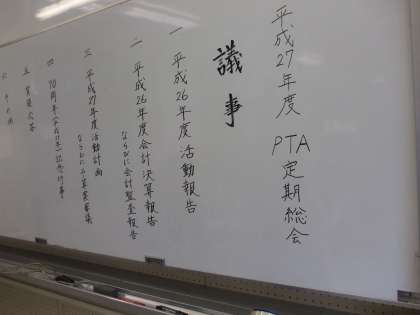 平成27年度 PTA定期総会
議事
一 平成26年度活動報告
二 平成26年度会計決算報告
ならびに会計監査報告
三 平成27年度活動計画
ならびに予算案審議
四 70周年
記念行事
五 質疑応答
六 その他